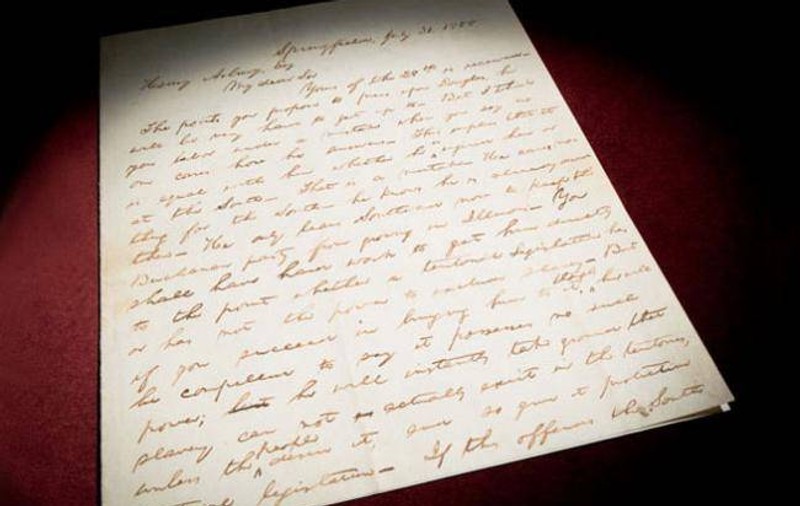 Springfield, July 31, 1858
Henry Asbury, Esq
My dear Sir
Yours of the 28th is received.
The points you propose to press upon Douglas, he
will be very hard to get up to. But I think
you labor under a mistake when you say no
one cares how he answers. This implies that it
is equal with him whether he is injured here or
at the South. That is a mistake. He cares no-
thing for the South—he knows he is already dead
there. He only leans Southward now to keep the
Buchanan party from growing in Illinois. You
shall have hard work to get him directly
to the point whether a territorial Legislature has
or has not the power to exclude slavery. But
if you succeed in bringing him to it, though he will
be compelled to say it possesses no such
power; he will instantly take ground that
slavery can not actually exist in the territories,
unless the people desire it, and so give it protective
legislation— If this offends the South